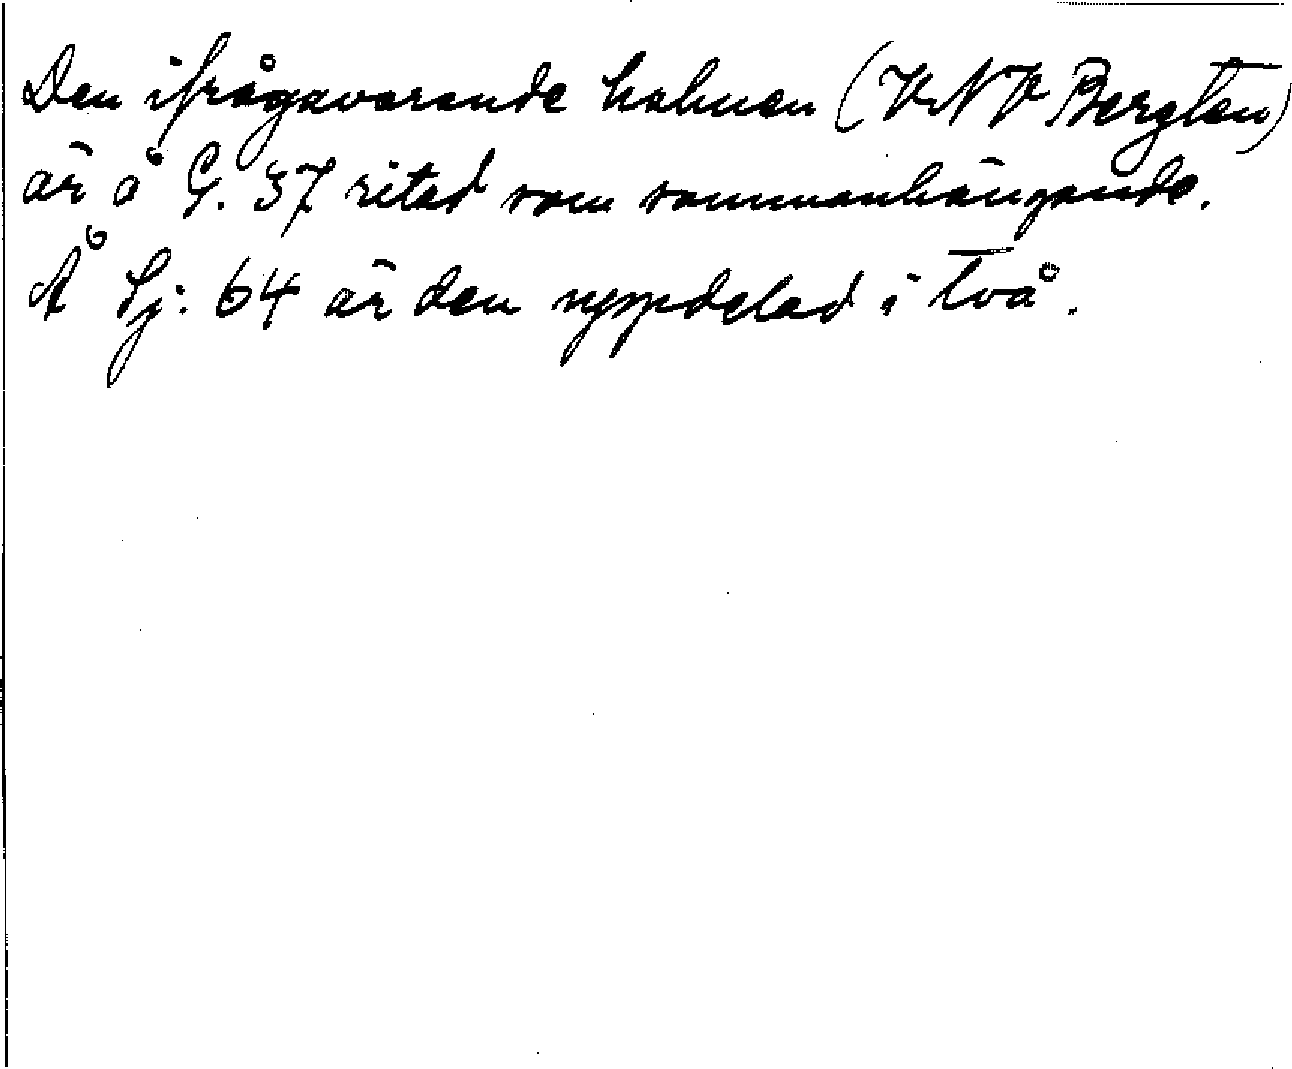 Den ifrågavarande holmen (V.N.V. Bergten)
är å G. 37 ritad som sammanhängande.
Å Sj: 64 är den uppdelad i två.